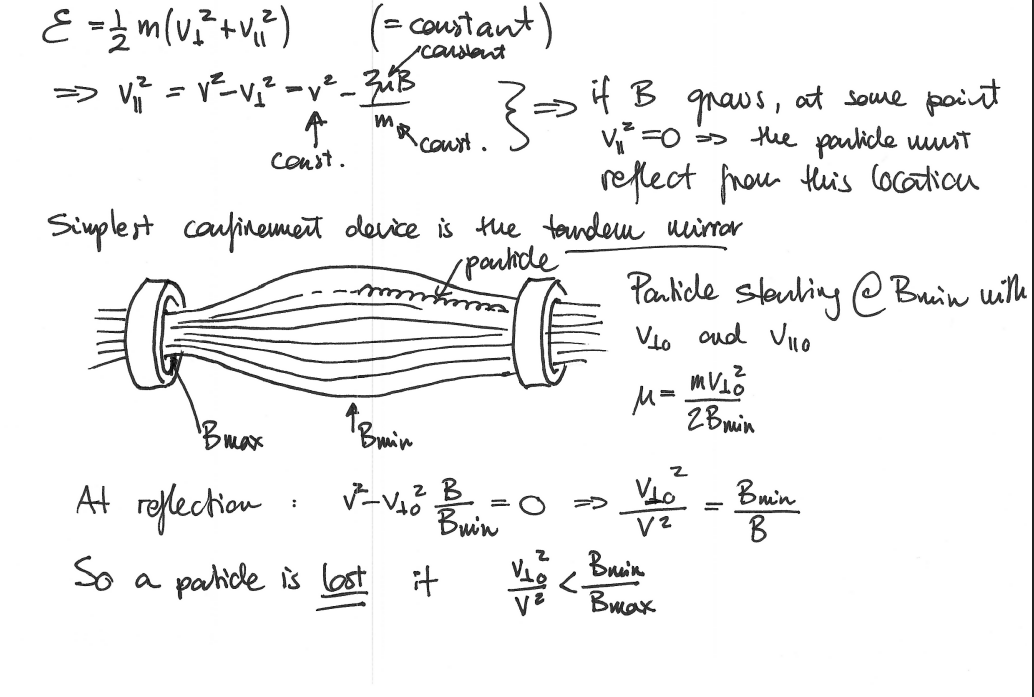 ℰ = ½ m(v⊥² + v∥²) (= constant)
constant
⇒ v∥² = v² − v⊥² = v² − 2μB/m } ⇒ if B grows, at some point
const. const. v∥² = 0 ⇒ the particle must
reflect from this location
Simplest confinement device is the tandem mirror
particle
Particle starting @ Bmin with
v⊥0 and v∥0
μ = mv⊥0²/2Bmin
Bmax Bmin
At reflection : v² − v⊥0² B/Bmin = 0 ⇒ v⊥0²/v² = Bmin/B
So a paticle is lost if v⊥0²/v² < Bmin/Bmax